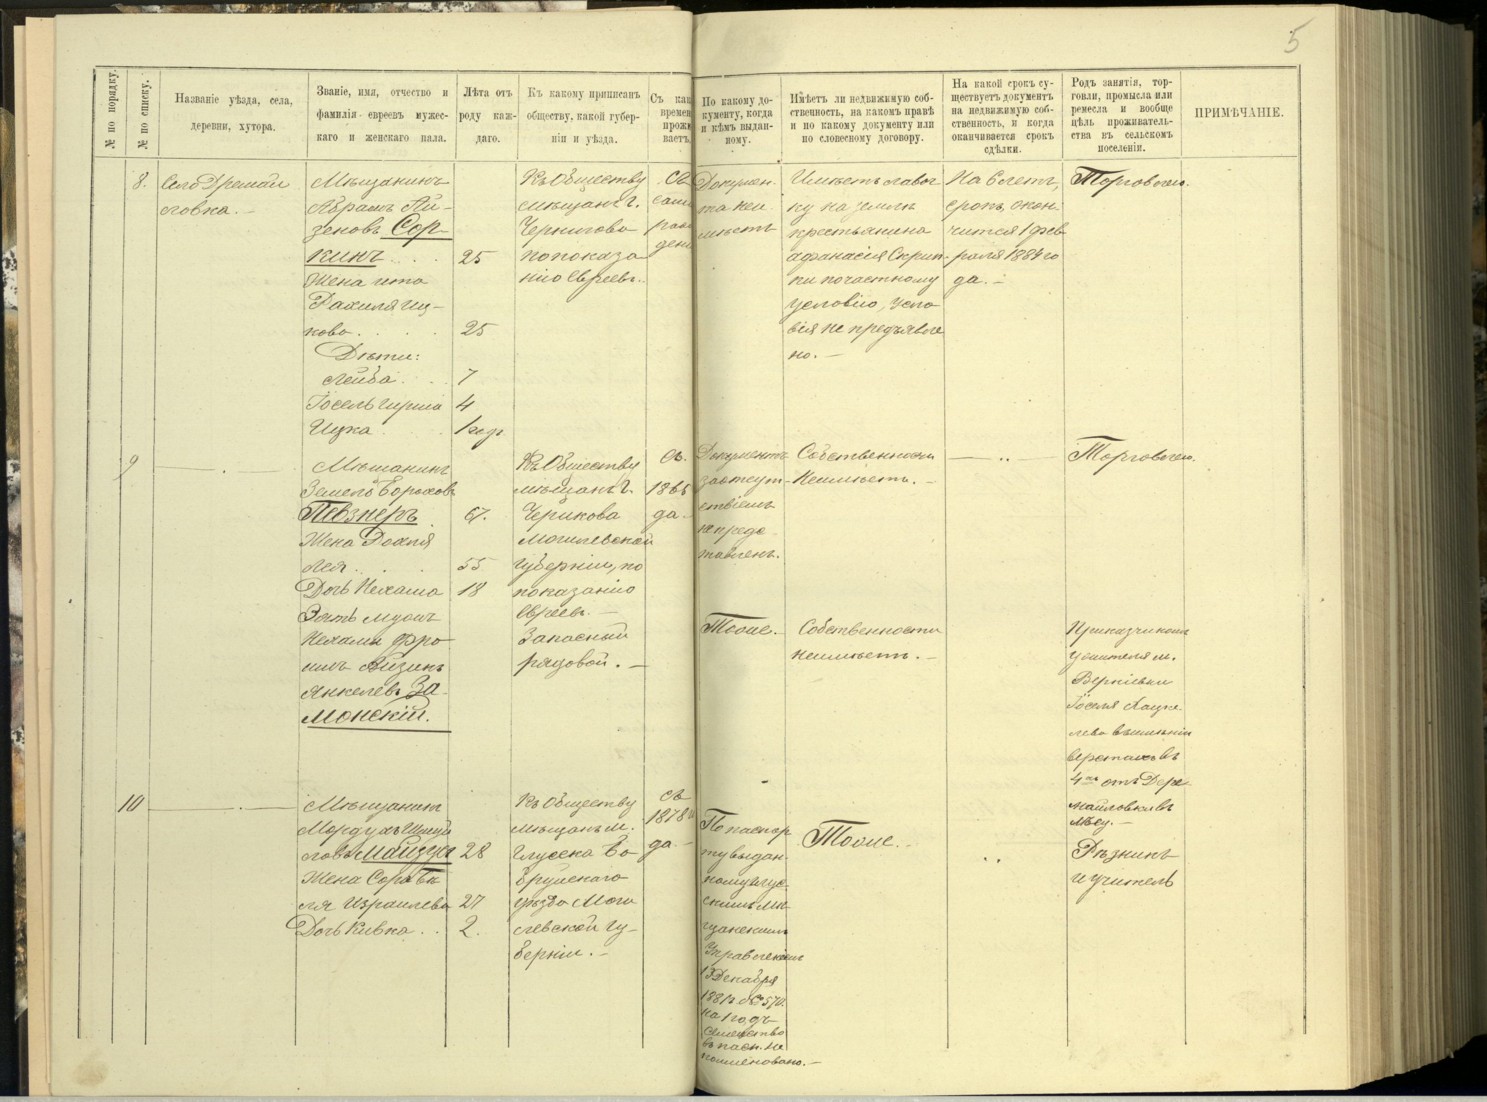 5
№ по порядку.
№ по списку.
Названіе уѣзда, села,
деревни, хутора.
Званіе, имя, отчество и
фамилія евреевъ мужес-
каго и женскаго пала.
Лѣта отъ
роду каж-
даго.
Къ какому приписанъ
обществу, какой губер-
ніи и уѣзда.
Съ как
времен
прожи
ваетъ
По какому до-
кументу, когда
и кѣмъ выдан-
ному.
Имѣетъ ли недвижимую соб-
ственность, на какомъ правѣ
и по какому документу или
по словесному договору.
На какой срокъ су-
ществуетъ документъ
на недвижимую соб-
ственность, и когда
оканчивается срокъ
сдѣлки.
Родъ занятія, тор-
говли, промысла или
ремесла и вообще
цѣль проживатель-
ства въ сельскомъ
поселеніи.
ПРИМѢЧАНІЕ.
8.
Село Дремай
ловка. —
Мѣщанинъ
Абрамъ Ай-
зеновъ Сор-
кинъ . . . 25
Жена Ита
Рахиля Иц-
кова . . . . 25
Дѣти:
Лейба . . . 7
Іосель Гирша 4
Ицка . . . 1 годъ
Къ Обществу
мѣщанъ г.
Чернигова
по показа-
нію Евреевъ.
Съ
само
рож
дені
Докумен-
та неи-
мѣетъ
Имѣетъ лавоч
ку на землѣ
крестьянина
Афанасія Скрип-
ки по частному
условію, усло-
вія не предъявле
но. —
На 6 лѣтъ,
срокъ окон-
чится 1 фев-
раля 1884 го
да. —
Торговлею.
9
Мѣщанинъ
Земель Борохов
Певзнеръ . 67.
Жена Рохля
Лея . . . 55
Дочь Нехама 18
Зять мужъ
Нехамы Фро-
имъ Айзикъ
Янкелевъ За-
монскій.
Къ Обществу
мѣщанъ г.
Черикова
Могилевской
Губерніи, по
показанію
Евреевъ. —
Запасный
рядовой. —
Съ
1865
да. —
Документъ
за отсут-
ствіемъ
не предс-
тавленъ.
Собственности
Неимѣетъ. —
— " —
Торговлею.
Тоже.
Собственности
неимѣетъ. —
Приказчикомъ
у жителя м.
Веркіевки
Іоселя Кацне
лева въ имѣніи
верстахъ въ
4хъ отъ Дре
майловки въ
лѣсу. —
10
Мѣщанинъ
Мордухъ Шмуй
ловъ Майзус 28
Жена Сора Бей
ля Израилева 27
Дочь Кивка . . 2.
Къ Обществу
мѣщанъ м.
Глуска Бо-
бруйскаго
уѣзда Моги
левской Гу-
берніи. —
Съ
1878 г
да —
По паспор
ту выдан
ному Глус
скимъ Мѣ
щанскимъ
Управленіемъ
13 Декабря
1881 г. за № 570.
на 1 годъ
Семейство
въ пасп. не
поименовано. —
Тоже.
"
Рѣзникъ
и учитель